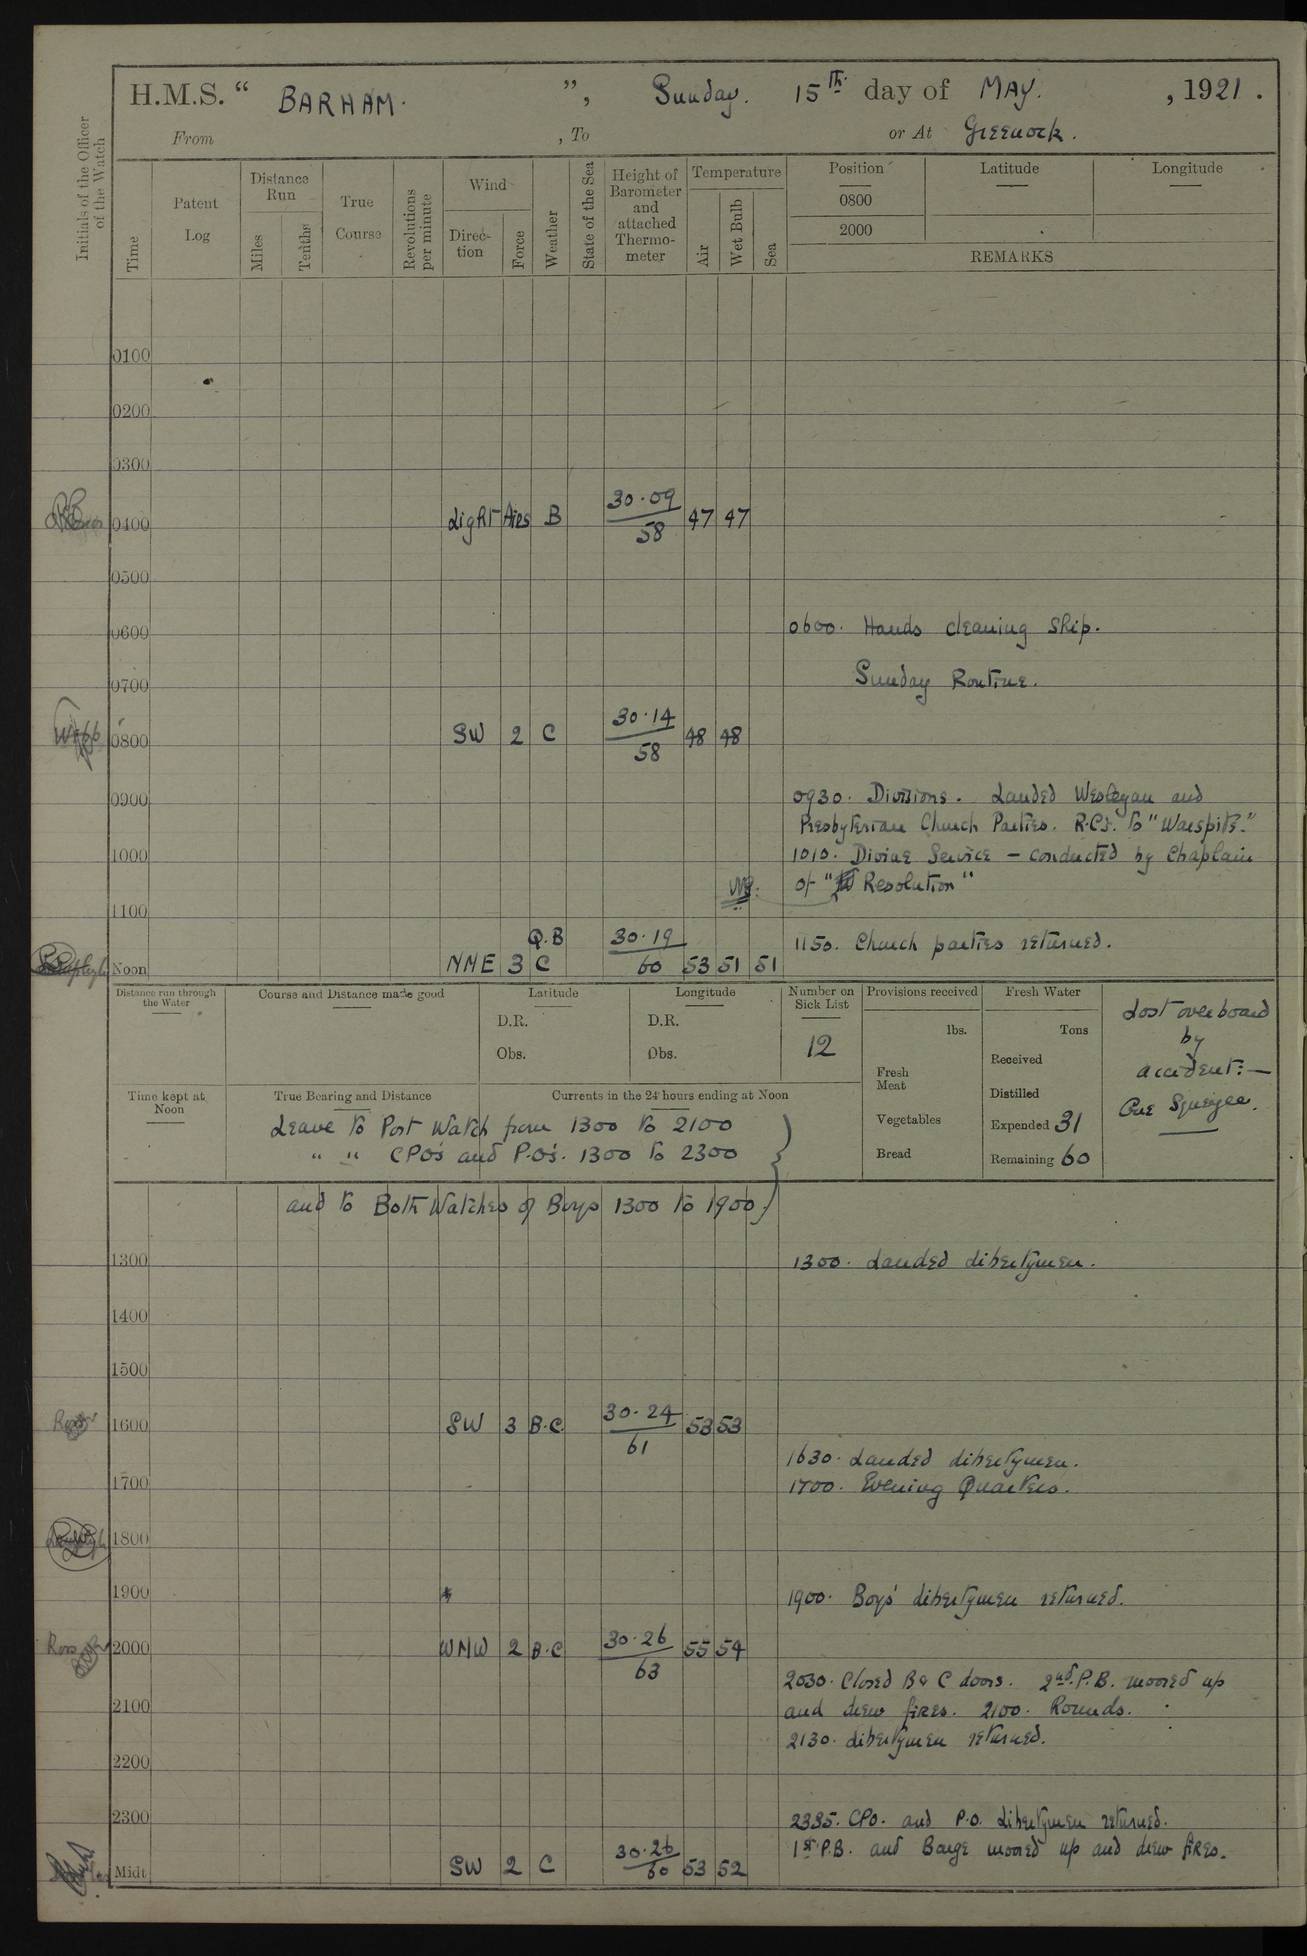 H.M.S. “ BARHAM. ”, Sunday. 15th. day of MAY. , 1921 .
From , To or At Greenock.
Initials of the Officer of the Watch
Time
Patent Log
Distance Run
Miles
Tenths
True Course
Revolutions per minute
Wind
Direction
Force
Weather
State of the Sea
Height of Barometer and attached Thermometer
Temperature
Air
Wet Bulb
Sea
Position Latitude Longitude
0800
2000
REMARKS
0100
0200
0300
0400 Light Airs B 30.09/58 47 47
0500
0600 0600. Hands cleaning Ship.
0700 Sunday Routine.
Webb 0800 SW 2 C 30.14/58 48 48
0900 0930. Divisions. Landed Wesleyan and
Presbyterian Church Parties. R.Cs. to "Warspite."
1000 1010. Divine Service – conducted by Chaplain
of " Resolution"
1100
1150. Church parties returned.
Noon NNE 3 Q.B C 30.19/60 53 51 51
Distance run through the Water
Course and Distance made good
Latitude
D.R.
Obs.
Longitude
D.R.
Obs.
Number on Sick List
12
Provisions received
lbs.
Fresh Meat
Vegetables
Bread
Fresh Water
Tons
Received
Distilled
Expended 31
Remaining 60
Lost overboard
by
accident:—
One Squeegee.
Time kept at Noon
True Bearing and Distance
Currents in the 24 hours ending at Noon
Leave to Port Watch from 1300 to 2100
" " CPO's and P.O's. 1300 to 2300
and to Both Watches of Boys 1300 to 1900
1300 1300. Landed libertymen.
1400
1500
1600 SW 3 B.C. 30.24/61 53 53
1630. Landed libertymen.
1700 1700. Evening Quarters.
1800
1900 1900. Boys' libertymen returned.
Ross 2000 WNW 2 B.C 30.26/63 55 54
2030. Closed B & C doors. 2nd. P.B. moored up
2100 and drew fires. 2100. Rounds.
2130. libertymen returned.
2200
2300 2335. CPO. and P.O. libertymen returned.
1st P.B. and Barge moored up and drew fires.
Midt SW 2 C 30.26/60 53 52